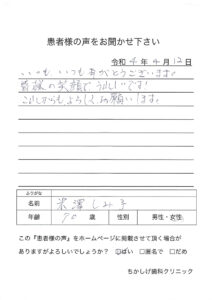 患者様の声をお聞かせ下さい
令和 4年 4月 12日
いつも、いつもありがとうございます。
皆様の笑顔で、うれしいです
これからもよろしくお願いします。
ふりがな
名前 しみ子
年齢 歳 性別 男性・女性
この『患者様の声』をホームページに掲載させて頂く場合が
ありますがよろしいでしょうか? ☑はい □匿名で □だめ
ちかしげ歯科クリニック